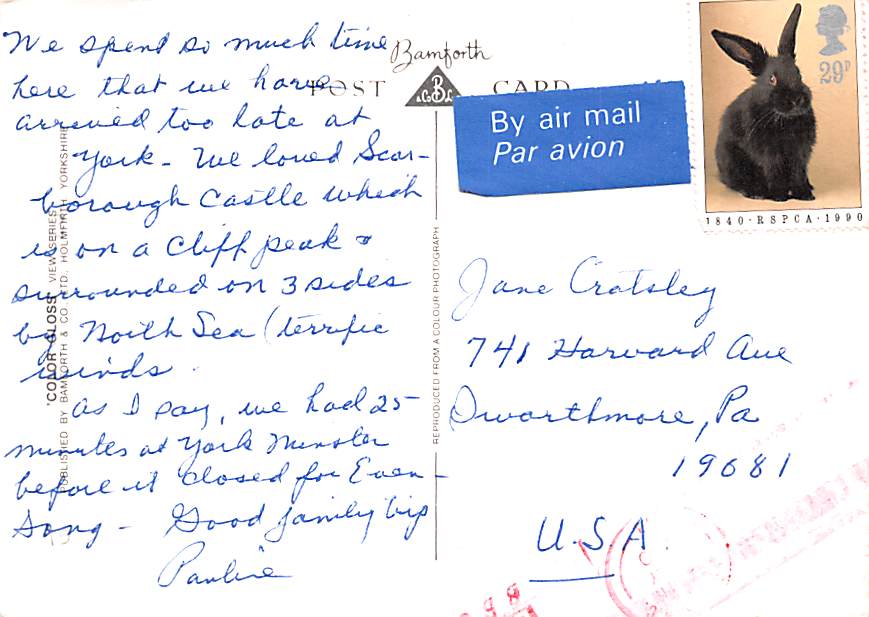 We spend so much time
here that we have
arrived too late at
York - We loved Scar-
borough Castle which
is on a Cliff peak &
surrounded on 3 sides
by North Sea (terrific
winds.
As I say, we had 25
minutes at York Minster
before it closed for Even-
Song - Good family trip
Pauline
Bamforth
POST CARD
& Co B Ld
By air mail
Par avion
29P
1840·RSPCA·1990
Jane Cratsley
741 Harvard Ave
Swarthmore, Pa
19081
U.S.A.
"COLOR GLOSS" VIEW SERIES
PUBLISHED BY BAMFORTH & CO., LTD., HOLMFIRTH YORKSHIRE
REPRODUCED FROM A COLOUR PHOTOGRAPH